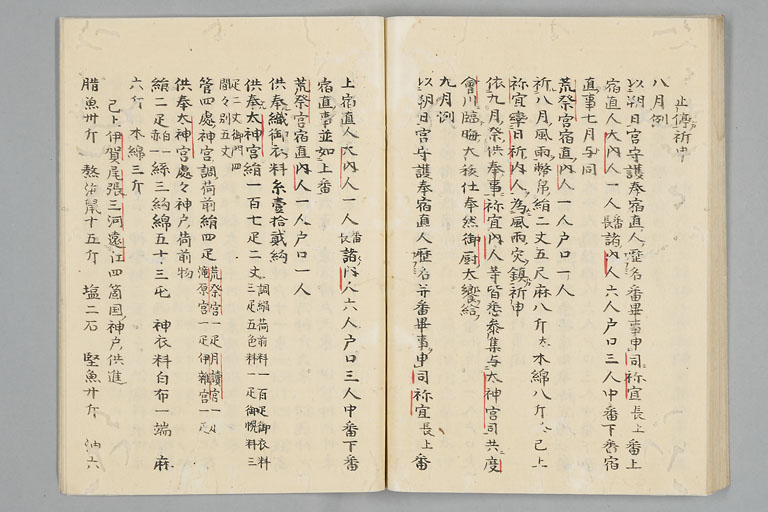 止傷祈申
八月例
以朔日宮守護奉宿直人歴名番畢事申司祢宜長上番上
宿直人大内人一人番長諸内人六人戸口三人中番下番宿
直事七月与同
荒祭宮宿直内人一人戸口一人
祈八月風雨幣帛絹二丈五尺麻八斤木綿八斤已上
祢宜率日祈内人為風雨災鎮祈申
依九月祭供奉事祢宜内人等皆悉参集与太神宮司共度
會川臨晦大祓仕奉然御厨大饗給
九月例
以朔日宮守護奉宿直人歴名并番畢事申司祢宜長上番
上宿直人大内人一人番長諸内人六人戸口三人中番下番
宿直事並如上番
荒祭宮宿直内人一人戸口一人
供奉織御衣料糸壹拾貳約
供奉太神宮絹一百七疋二丈調絹荷前料一百疋御衣料三疋五色料一疋御幌料三
疋二丈御門四間々別五丈
管四處神宮調荷前絹四疋荒祭宮一疋月讀宮一疋滝原宮一疋伊雜宮一疋
供奉太神宮處々神戸荷前物
絹二疋赤一白一絲三約綿五十三屯 神衣料白布一端 麻
六斤 木綿三斤
已上伊賀尾張三河遠江四箇国神戸供進
腊魚卅斤 熬海鼠十五斤 塩二石 堅魚卅斤 油六